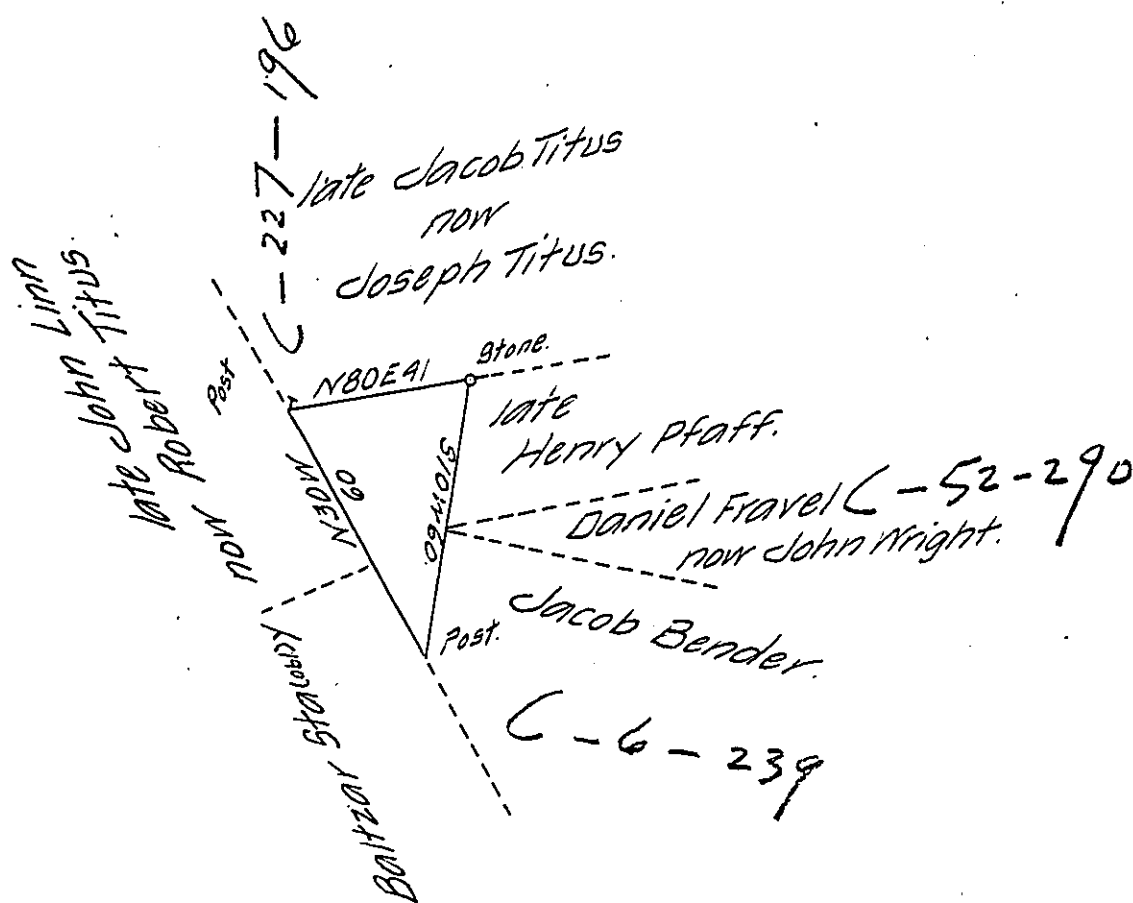 C-227-196
late Jacob Titus
now
Joseph Titus.
late John Linn
late Robert Titus
now
Post
N80E41
Stone.
late
Henry Pfaff.
N30W
60
S10W60.
Daniel Fravel C-52-290
now John Wright.
Jacob Bender.
Post.
Baltzar
C-6-239